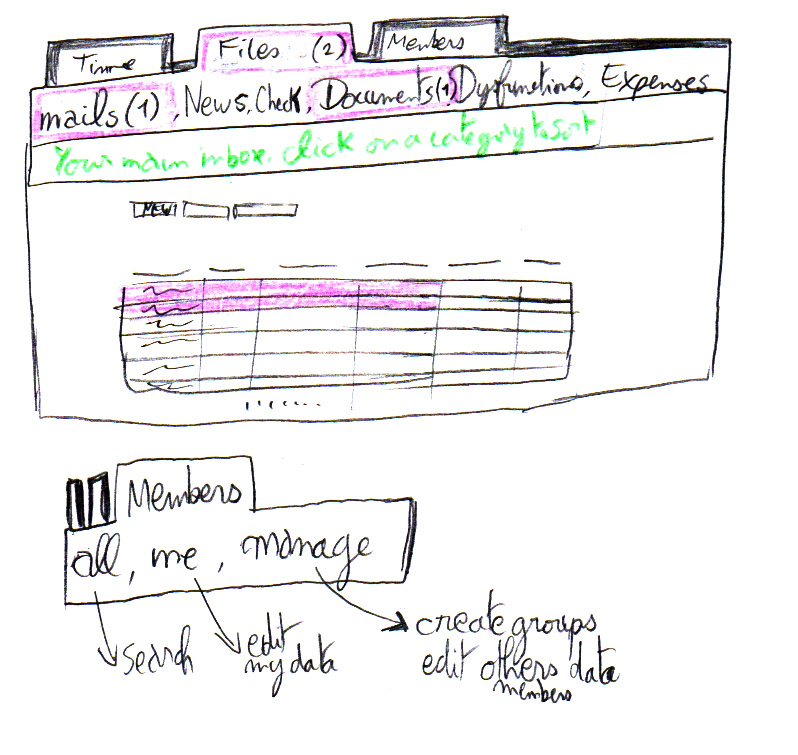 Time Files (2) Members
mails (1), News, Check, Documents (1) Dysfunctions, Expenses
Your main inbox. click on a category to sort
NEW
Members
all, me, manage
search
edit
my data
create groups
edit others data
members